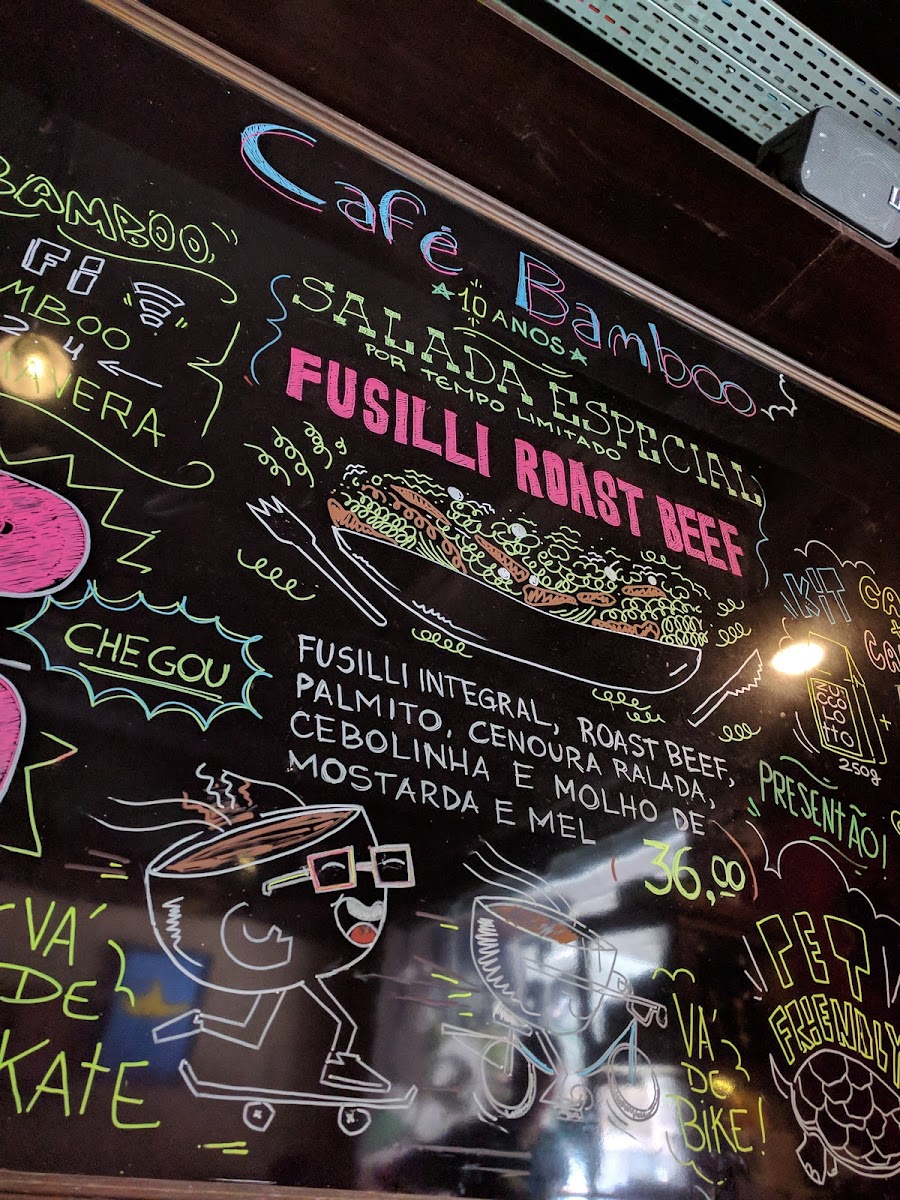 Café Bamboo
★10 ANOS★
SALADA ESPECIAL
POR TEMPO LIMITADO
FUSILLI ROAST BEEF
FUSILLI INTEGRAL, ROAST BEEF,
PALMITO, CENOURA RALADA,
CEBOLINHA E MOLHO DE
MOSTARDA E MEL
36,00
BAMBOO
FI
MBOO
CHEGOU
VÁ
DE
KATE
VÁ
DE
BIKE!
KIT
CA
+
CA
250g
+
PRESENTÃO!
PET
FRIENDLY